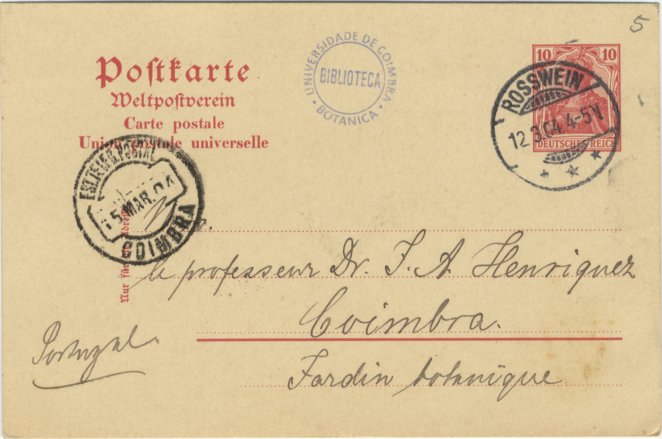 5
UNIVERSIDADE DE COIMBRA
BIBLIOTECA
BOTANICA
Postkarte
Weltpostverein
Carte postale
Union postale universelle
10 10
DEUTSCHES REICH
ROSSWEIN
04 4-5N
POSTAL
MAR. 04
COIMBRA
Nur für
le professeur Dr. J. A. Henriquez
Coimbra.
Portugal.
Jardin botanique